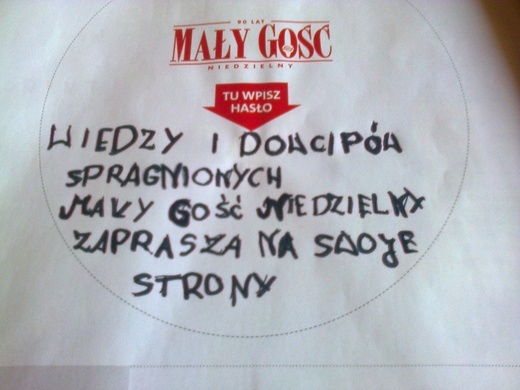 90 LAT
MAŁY GOŚĆ
NIEDZIELNY
TU WPISZ
HASŁO
WIEDZY I DOWCIPÓW
SPRAGNIONYCH
MAŁY GOŚĆ NIEDZIELNY
ZAPRASZA NA SWOJE
STRONY